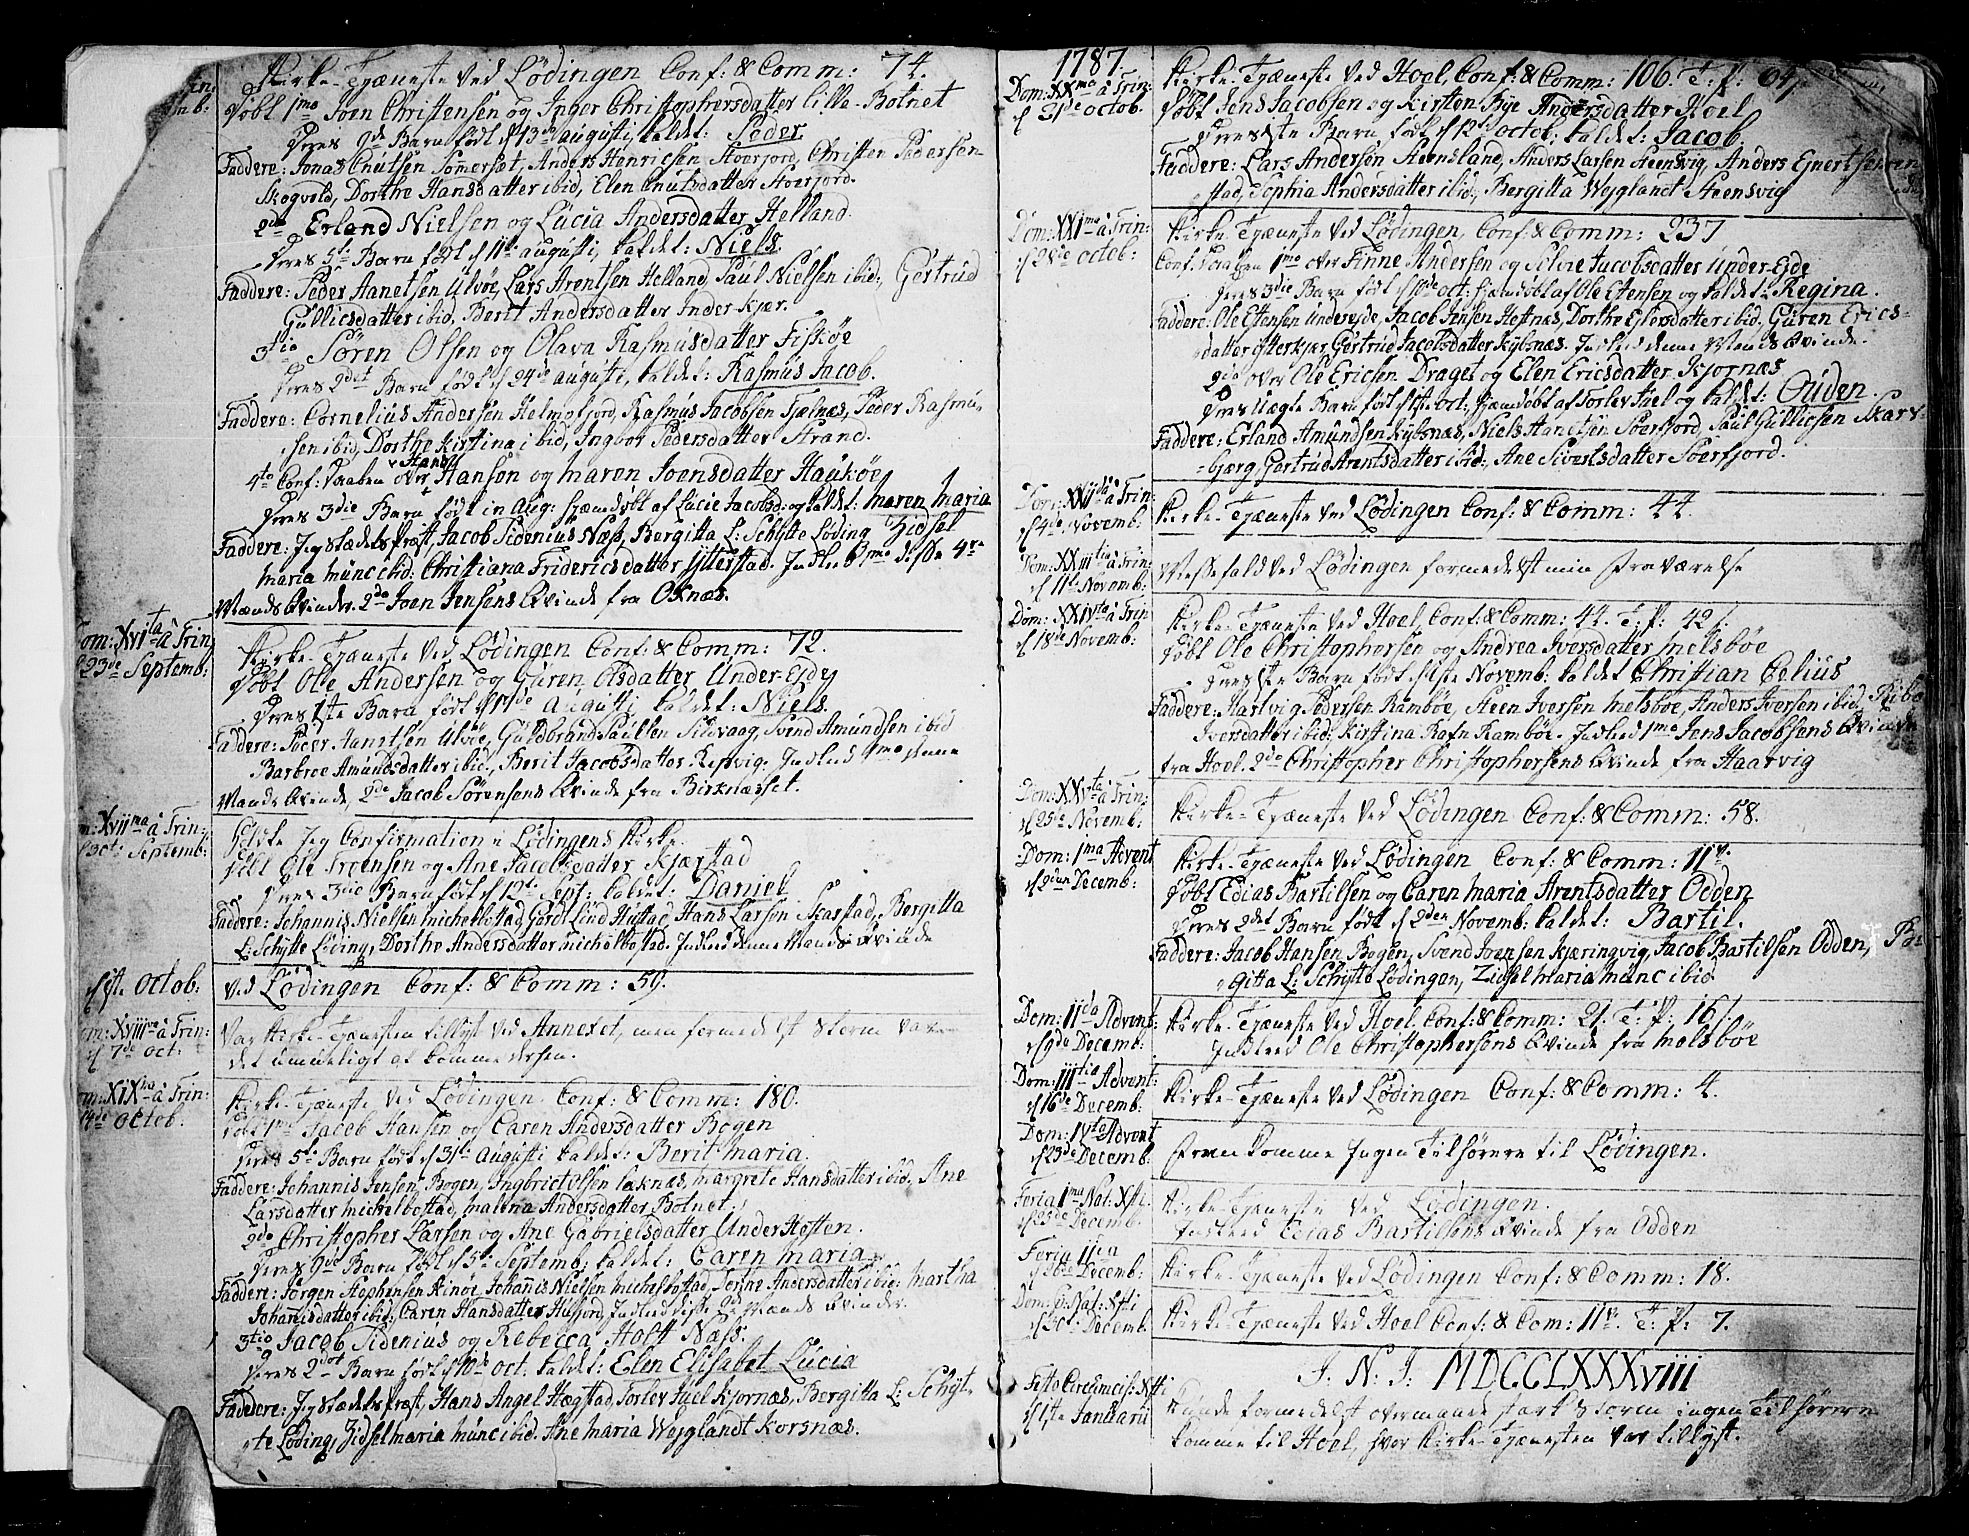 Kirke-Tjæneste ved Lødingen Conf: & Comm: 74.
Døbt 1mo Joen Christensen og Inger Christophersdatter Lille-Botnet
Deres 9de Barn født d 13de augusti, kaldet: Peder
Faddere: Jonas Cnutsen Somersæt, Anders Henricsen Stoerfjord, Christen Pedersen
Skogvold, Dorthe Hansdatter ibid, Elen Cnutsdatter Stoerfjord.
2do Erland Nielsen og Lucia Andersdatter Helland.
Deres 5te Barn født d 11te augusti, kaldet: Niels.
Faddere: Peder Hanetsen Ulvöe, Lars Arentsen Helland, Paul Nielsen ibid, Gertrud
Gullicsdatter ibid. Berit Andersdatter Inder-Kjær.
3tio Sören Olsen og Olava Rasmusdatter Fiskøe
Deres 2det Barn født d 24de augusti, kaldet: Rasmus Jacob.
Faddere: Cornelius Andersen Helmofjord, Rasmus Jacobsen Fjelnæs, Peder Rasmu-
sen ibid, Dorthe Kirstina ibid, Ingbor Pedersdatter Strand.
4to Conf: Daaben over Hans Hansen og Maren Joensdatter Haukøe
Deres 3die Barn født in Aug: hjemdøbt af Lucie Jacobsd: og kaldet: Maren Maria
Faddere: Jeg stædets Præst, Jacob Sidenius Næss, Bergitta L: Schytte Løding Zidsel
Maria Munc ibid: Christiana Fridericsdatter Ytterstad. Indleed 1mo disse 4re
Mænds Qvinder. 2do Joen Jensens Qvinde fra Oxnæs.
Dom: XVIta à Trin
d 23de Septemb:
Kirke-Tjæneste ved Lødingen Conf: & Comm: 72.
Døbt Ole Andersen og Guren Olsdatter Under-Ejdej
Deres 1ste Barn født d augusti kaldet: Niels.
Faddere: Peder Hanetsen Ulvöe, Guldbrand Paulsen Sildvaag, Svend Amundsen ibid
Barbroe Amundsdatter ibid., Berit Jacobsdatter Repvig. Indleed 1mo denne
Mands Qvinde, 2do Jacob Sörensens Qvinde fra Birknæsset.
Dom: XVIIma à Trin:
d 30te Septemb:
Holdte Jeg Confirmation i Lødingens Kirke.
Døbt Ole Troensen og Ane Jacobsdatter Kjærstad
Deres 3die Barn født d 12te Sept: kaldet: Daniel
Faddere: Johannis Nielsen Michelbostad, Gerdt Lind Hustad, Hans Larsen Skarstad, Bergitta
L: Schytte Löding, Dorthe Andersdatter Michelbostad. Indleed denne Mands Qvinde
d 1ste Octob:
ved Lødingen Conf: & Comm: 59.
Dom: XVIIIva à Trin:
d 7de Oct:
Var Kirke-Tjænesten tillyst ved Annexet, men formedelst Storm var
det umueligt at komme dertil.
Dom: XIXna à Trin:
d 14de Octob.
Kirke-Tjæneste ved Lødingen. Conf: & Comm: 180.
Døbt 1mo Jacob Hansen og Caren Andersdatter Bogen
Deres 5te Barn født d 31te augusti kaldet: Berit Maria.
Faddere: Johannis Jensen Bogen, Ingbrict Olsen Læknæs, Margrete Hansdatter ibid, Ane
Larsdatter Michelbostad, Malena Andersdatter Botnet.
2do Christopher Larsen og Ane Gabrielsdatter Under Hoften.
Deres 9de Barn født d 5te Septemb: kaldet: Caren Maria
Faddere: Jørgen Stephensen Rinöe, Johannis Nielsen Michelbostad, Terine Andersdatter ibid: Martha
Johannisdatter ibid, Caren Hansdatter Husjord, Indleed disse 2de Mænds Qvinder.
3tio Jacob Sidenius og Rebecca Holst Næss.
Deres 2det Barn født d 10de Oct. kaldet: Elen Elisabet Lucia
Faddere: Jeg stædets Præst, Hans Angel Hægstad, Torlev Juel Kjornæs, Bergitta L: Schyt-
te Löding, Zidsel Maria Munc ibid. Ane Maria Wejglandt Korsnæs.
1787.
Dom: XXma à Trin:
d 21de Octob.
Kirke-Tjæneste ved Hoel Conf: & Comm: 106. T: P:
Døbt Jens Jacobsen og Kirsten Bye Andersdatter Hoel
Deres 1ste Barn født d 12te Octob: kaldet: Jacob
Faddere: Lars Andersen Steensland, Anders Larsen Steensvig, Anders Ejnertsen
stad, Sophia Andersdatter ibid., Bergitta Wejglandt Steensvig
Dom: XXIma à Trin:
d 28de Octob:
Kirke-Tjæneste ved Lødingen, Conf: & Comm: 237
Conf: Daaben 1mo over Finne Andersen og Siløe Jacobsdatter Under-Ejde
Deres 3die Barn født d Oct: hjemdøbt af Ole Etensen og kaldet: Regina.
Faddere: Ole Etensen Underejde, Jacob Jensen Heftnæs, Dorthe Ejlersdatter ibid. Guren Erics-
datter Ytterkjær, Gertrud Jacobsdatter Kybsnæs. Indleed denne Mands Qvinde.
2do over Ole Ericsen Draget og Elen Ericsdatter Kjornæs
Deres Uægte Barn født d 1ste Oct: hjemdøbt af Torlev Juel og kaldet: Ouden.
Faddere: Erland Amundsen Kybsnæs, Niels Hansen Soerfjord, Paul Gullicsen Skarv-
bjerg, Gertrud Arentsdatter ibid., Ane Sivertsdatter Soerfjord.
Dom: XXIIda à Trin:
d 4de Novemb:
Kirke-Tjæneste ved Lødingen Conf: & Comm: 44.
Dom: XXIIItia à Trin:
d 11te Novemb:
Messefald ved Lødingen formedelst min Fraværelse
Dom: XXIVta à Trin
d 18de Novemb:
Kirke-Tjæneste ved Hoel, Conf: & Comm: 44. T: P: 42 ſ.
Døbt Ole Christophersen og Andrea Iversdatter Melsbøe
Deres 1ste Barn født d 1ste Novemb: kaldet Christian Celius
Faddere: Hartvig Pedersen Rambøe, Steen Iversen Melsbøe, Anders Iversen ibid, Ribe
Iversdatter ibid, Kirstina Rafn Rambøe. Indleed 1mo Jens Jacobsens Qvinde
fra Hoel. 2do Christopher Christophersens Qvinde fra Haarvig
Dom: XXVta à Trin:
d 25de Novemb:
Kirke-Tjæneste ved Lødingen Conf: & Comm: 58.
Dom: 1ma Advent
d 2den Decemb:
Kirke-Tjæneste ved Lødingen Conf: & Comm: 11ve
Døbt Edias Bartilsen og Caren Maria Arentsdatter Odden
Deres 2det Barn født d 2den Novemb: kaldet: Bartil.
Faddere: Jacob Hansen Bogen, Svend Joensen Kjæringvig, Jacob Bartilsen Odden, Ber
gitta L: Schytte Lödingen, Zidsel Maria Munc ibid.
Dom: IIda Advent:
d 9de Decemb:
Kirke-Tjæneste ved Hoel. Conf: & Comm: 21. T: P: 16 ſ.
Indleed Ole Christophersens Qvinde fra Melsbøe
Dom: IIItia Advent:
d 16de Decemb:
Kirke-Tjæneste ved Lødingen Conf: & Comm: 4.
Dom: IVta Advent
d 23de Decemb:
Fremkomme Ingen Tilhörere til Lødingen.
Feria 1ma Nat: Xsti.
d 25de Decemb:
Kirke-Tjæneste ved Lødingen.
Indleed Edias Bartilsens Qvinde fra Odden
Feria IIda
d 26de Decemb:
Kirke-Tjæneste ved Lødingen Conf: & Comm: 18.
Dom: p: Nat: Xsti
d 30te Decemb
Kirke-Tjæneste ved Hoel Conf: & Com: 11ve. T: P: 7.
J. N. J. MDCCLXXXVIII
Festo Circumcis: Xsti
d 1ste Januarii
Kunde formedelst overmaade stærk Storm ingen Tilhörere
komme til Hoel, hvor Kirke-Tjænesten var tillyst.